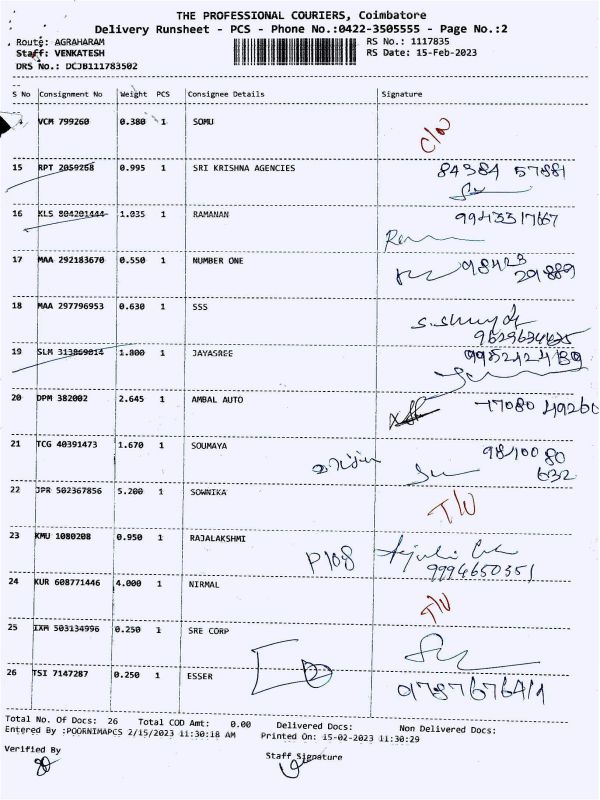 THE PROFESSIONAL COURIERS, Coimbatore
Delivery Runsheet - PCS - Phone No.:0422-3505555 - Page No.:2
Route: AGRAHARAM RS No.: 1117835
Staff: VENKATESH RS Date: 15-Feb-2023
DRS No.: DCJB111783502
S No Consignment No Weight PCS Consignee Details Signature
VCM 799260 0.380 1 SOMU
15 RPT 2059268 0.995 1 SRI KRISHNA AGENCIES 84384 57881
16 KLS 804201444 1.035 1 RAMANAN
17 MAA 292183670 0.550 1 NUMBER ONE 98423
291889
18 MAA 297796953 0.630 1 SSS
19 SLM 313869814 1.800 1 JAYASREE
20 DPM 382002 2.645 1 AMBAL AUTO 77080 49260
21 TCG 40391473 1.670 1 SOUMAYA 98100 80
632
22 JPR 502367856 5.200 1 SOWNIKA T/U
23 KMU 1080208 0.950 1 RAJALAKSHMI P108
9994650351
24 KUR 608771446 4.000 1 NIRMAL T/U
25 IXM 503134996 0.250 1 SRE CORP
26 TSI 7147287 0.250 1 ESSER
Total No. Of Docs: 26 Total COD Amt: 0.00 Delivered Docs: Non Delivered Docs:
Entered By :POORNIMAPCS 2/15/2023 11:30:18 AM Printed On: 15-02-2023 11:30:29
Verified By Staff Signature